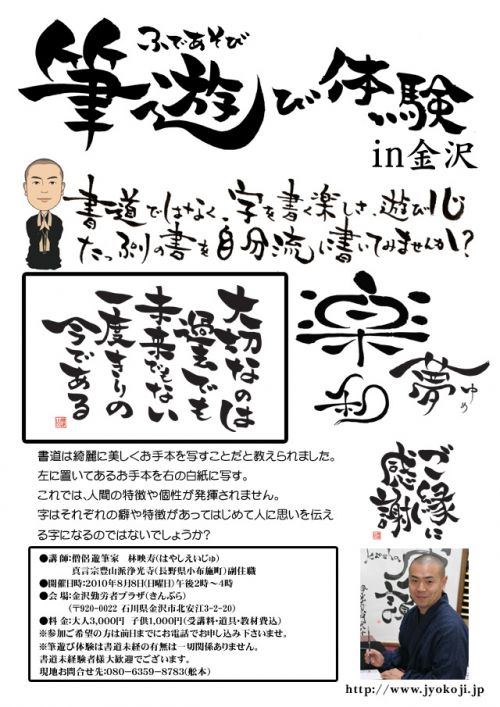 ふであそび
筆遊び体験
in金沢
書道ではなく、字を書く楽しさ、遊び心
たっぷりの書を自分流に書いてみませんか!?
大切なのは
過去でも
未来でもない
一度きりの
今である
楽
夢
ゆめ
ご縁に
感謝
書道は綺麗に美しくお手本を写すことだと教えられました。
左に置いてあるお手本を右の白紙に写す。
これでは、人間の特徴や個性が発揮されません。
字はそれぞれの癖や特徴があってはじめて人に思いを伝え
る字になるのではないでしょうか?
●講師:僧侶遊筆家 林映寿(はやしえいじゅ)
真言宗豊山派浄光寺(長野県小布施町)副住職
●開催日時:2010年8月8日(日曜日)午後2時~4時
●会場:金沢勤労者プラザ(きんぷら)
(〒920-0022 石川県金沢市北安江3-2-20)
●料金:大人3,000円 子供1,000円(受講料・道具・教材費込)
※参加ご希望の方は前日までにお電話でお申し込み下さいませ。
※筆遊び体験は書道未経の有無は一切関係ありません。
書道未経験者様大歓迎でございます。
現地お問合せ先:080-6359-8783(舩本)
http://www.jyokoji.jp